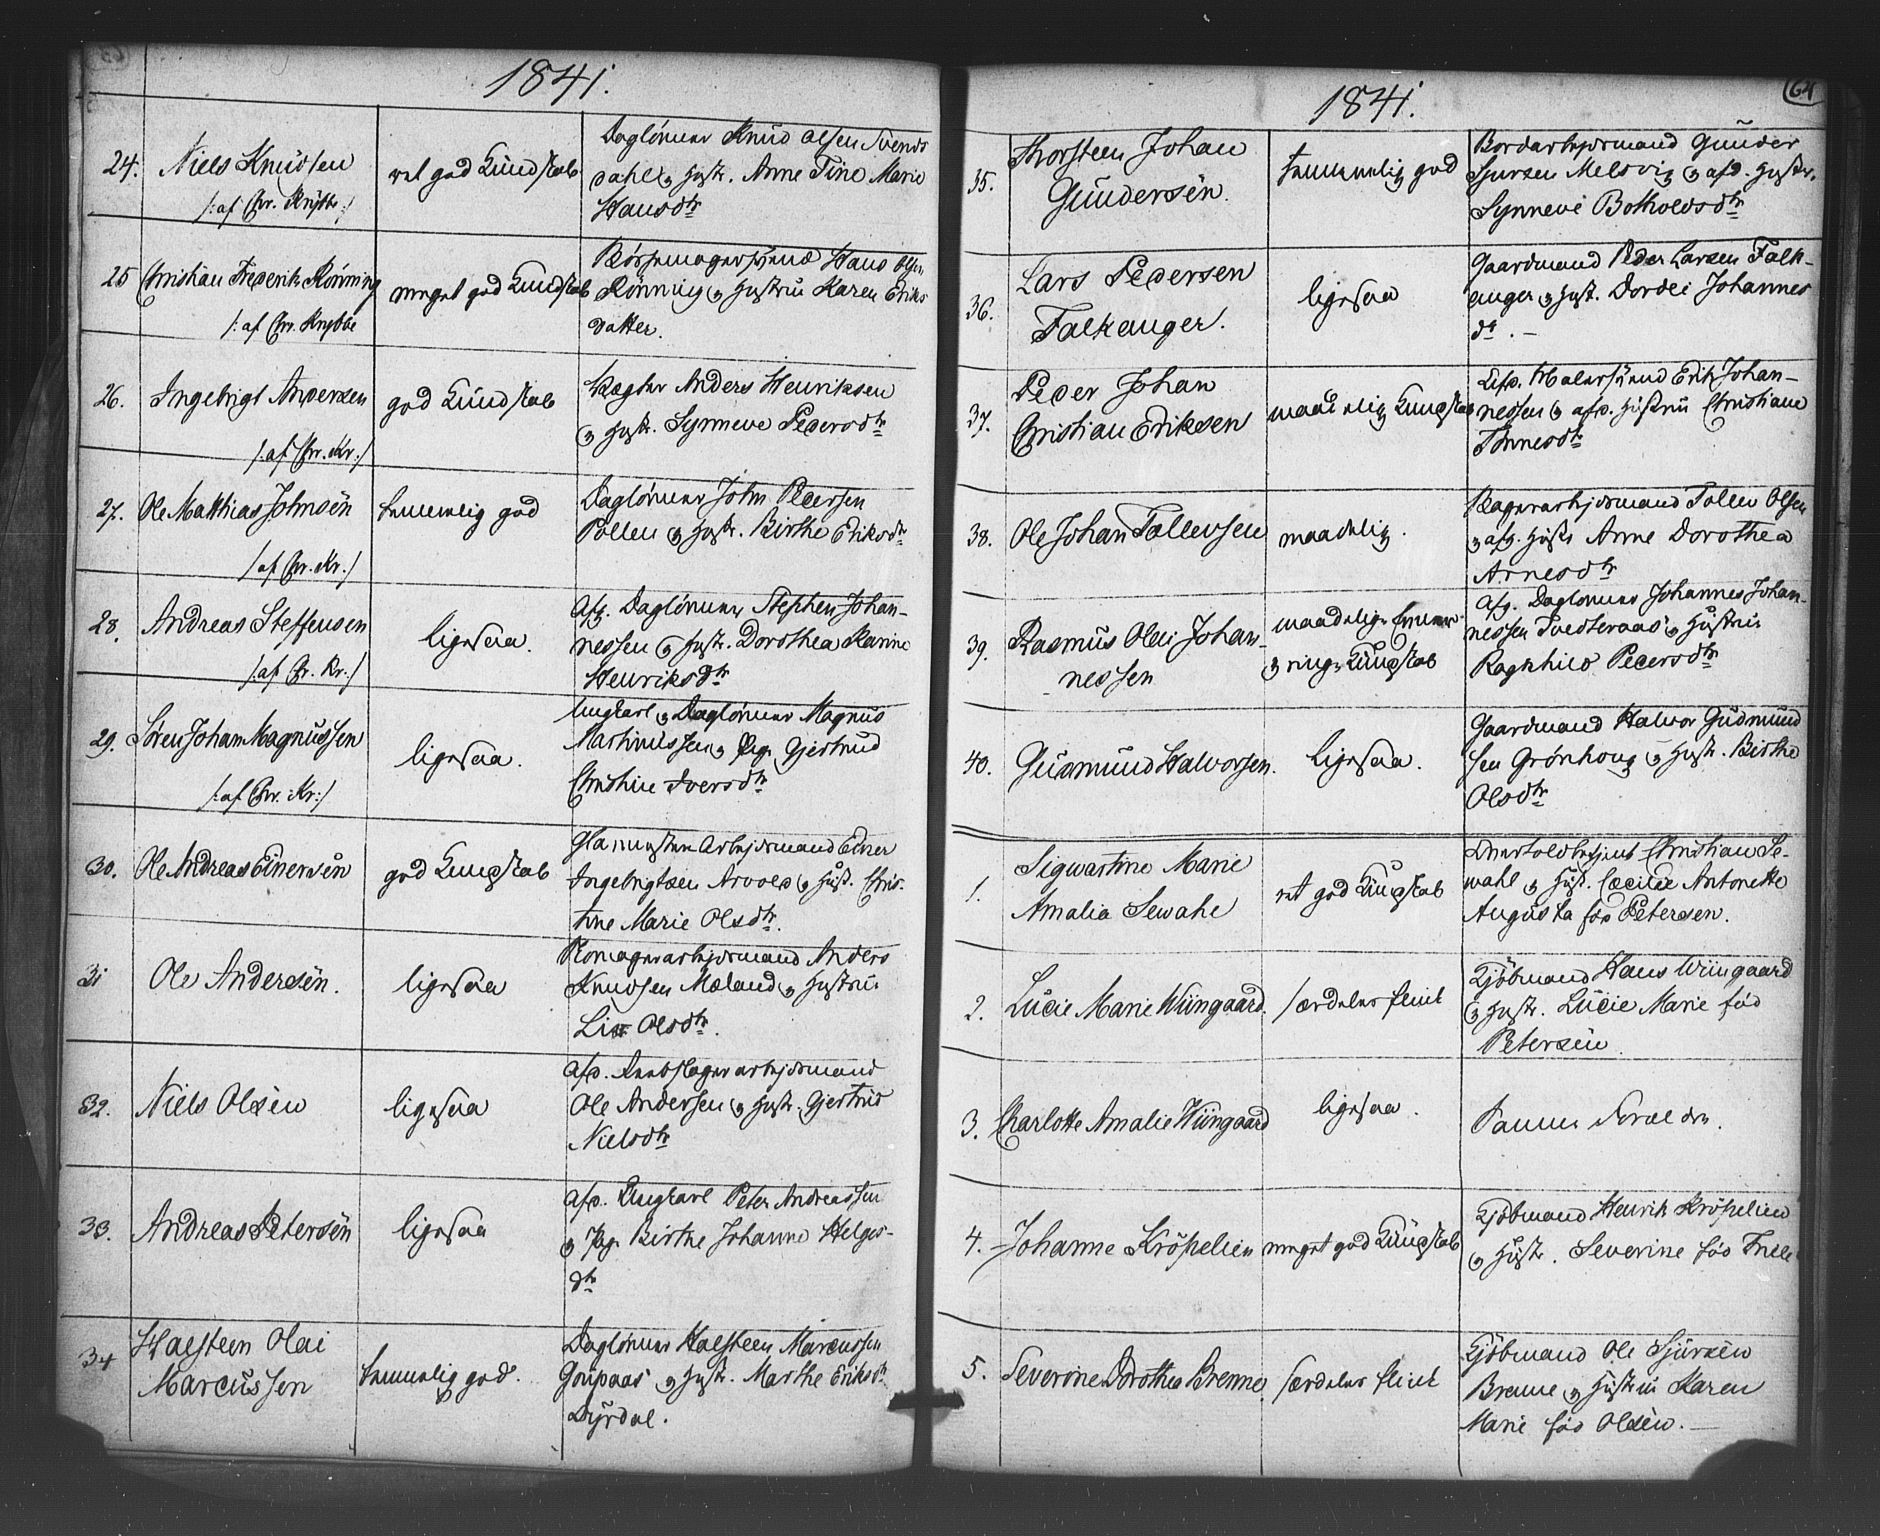 1841.
24.
Niels Knudsen
/:af Chr. Krybbe:/
ret god Kundskab
Daglönner Knud Olsen Svends
dahl og Hustr. Anne Tine Marie
Hansdtr
25
Christian Frederik Rönning
/:af Chr. Krybbe
meget god Kundskab
Bössemagersvend Hans Olsen
Rönning og Hustrue Karen Eriks
datter.
26.
Ingebrigt Andersen
/:af Chr. Kr:/
god Kundskab
Vægter Anders Henriksen
og Hustr. Synneve Pedersdtr
27.
Ole Matthias Johnsen
/af Chr. Kr./
temmelig god
Daglönner John Pedersen
Pollen og Hustr. Birthe Eriksdtr
28.
Andreas Steffensen
/:af Chr. Kr:/
ligesaa.
Afg. Daglönner Stephen Johan-
nessen og Hustr. Dorothea Karine
Henriksdtr
29.
Sören Johan Magnussen
/:af Chr. Kr:/
ligesaa.
Ungkarl og Daglönner Magnus
Martinussen og Pige Gjertrud
Christine Iversdtr
30.
Ole Andreas Einersen
god Kundskab
Arbejdsmand Einer
Ingebrigtsen Arvole og Hust. Chris-
tine Marie Olsdtr.
31
Ole Andersen.
ligesaa
arbejdsmand Anders
Knudsen Mæland og Hustrue
Olsdtr.
32.
Niels Olsen
ligesaa
Afd. arbejdsmand
Ole Andersen og Hustr. Gjertrud
Nielsdtr
33.
Andreas Petersen
ligesaa
Afd. Ungkarl Peter Andreassen
og Pige Birthe Johanne Helges-
dtr
34
Halsteen Olai
Marcussen
temmelig god.
Daglönner Halsteen Marcussen
og Hustr. Marthe Eriksdtr
Dyrdal.
64
1841.
35.
Thorsteen Johan
Gundersen.
temmelig god
arbejdsmand Gunder
Sjursen Melsvig og afd. Hustr.
Synneve Botholdsdtr
36.
Lars Pedersen
Falkanger.
ligesaa
Gaardmand Peder Larsen Falk-
anger og Hust. Dordei Johannes
dtr. -
37.
Peder Johan
Christian Eriksen
maadelig Kundskab
Afd. Malersvend Erik Johan-
nessen og afd. Hustrue Christiane
Tönnesdtr
38.
Ole Johan Tollevsen
maadelig.
arbejdsmand Tollev Olsen
og afg. Hustr Anne Dorothea
Arnesdtr
39.
Rasmus Olai Johan-
nessen
maadelige Evner
og ringe Kundskab
Afg. Daglönner Johannes Johan-
nessen Tvedteraas og Hustrue
Ragnhild Pedersdtr
40.
Gudmund Halvorsen.
ligesaa.
Gaardmand Halvor Gudmund
sen Grönhoug og Hustr. Birthe
Olsdtr
1.
Sigwartine Marie
Amalia Sewahl
ret god Kundskab
Christian Se-
wahl og Hust. Cæcilie Antonette
Augusta föd Petersen.
2.
Lucie Marie Wiingaard.
særdeles flink
Kjöbmand Hans Wiingaard
og Hustr. Lucie Marie föd
Petersen.
3.
Charlotte Amalie Wiingaard
ligesaa.
Samme Forældre.
4.
Johanne Kröpelien
meget god Kundskab
Kjöbmand Henrik Kröpelien
og Hustr. Severine föd Friele
5.
Severine Dorothea Brenne
særdeles flink
Kjöbmand Ole Sjursen
Brenne og Hustrue Karen
Marie föd Olsen.